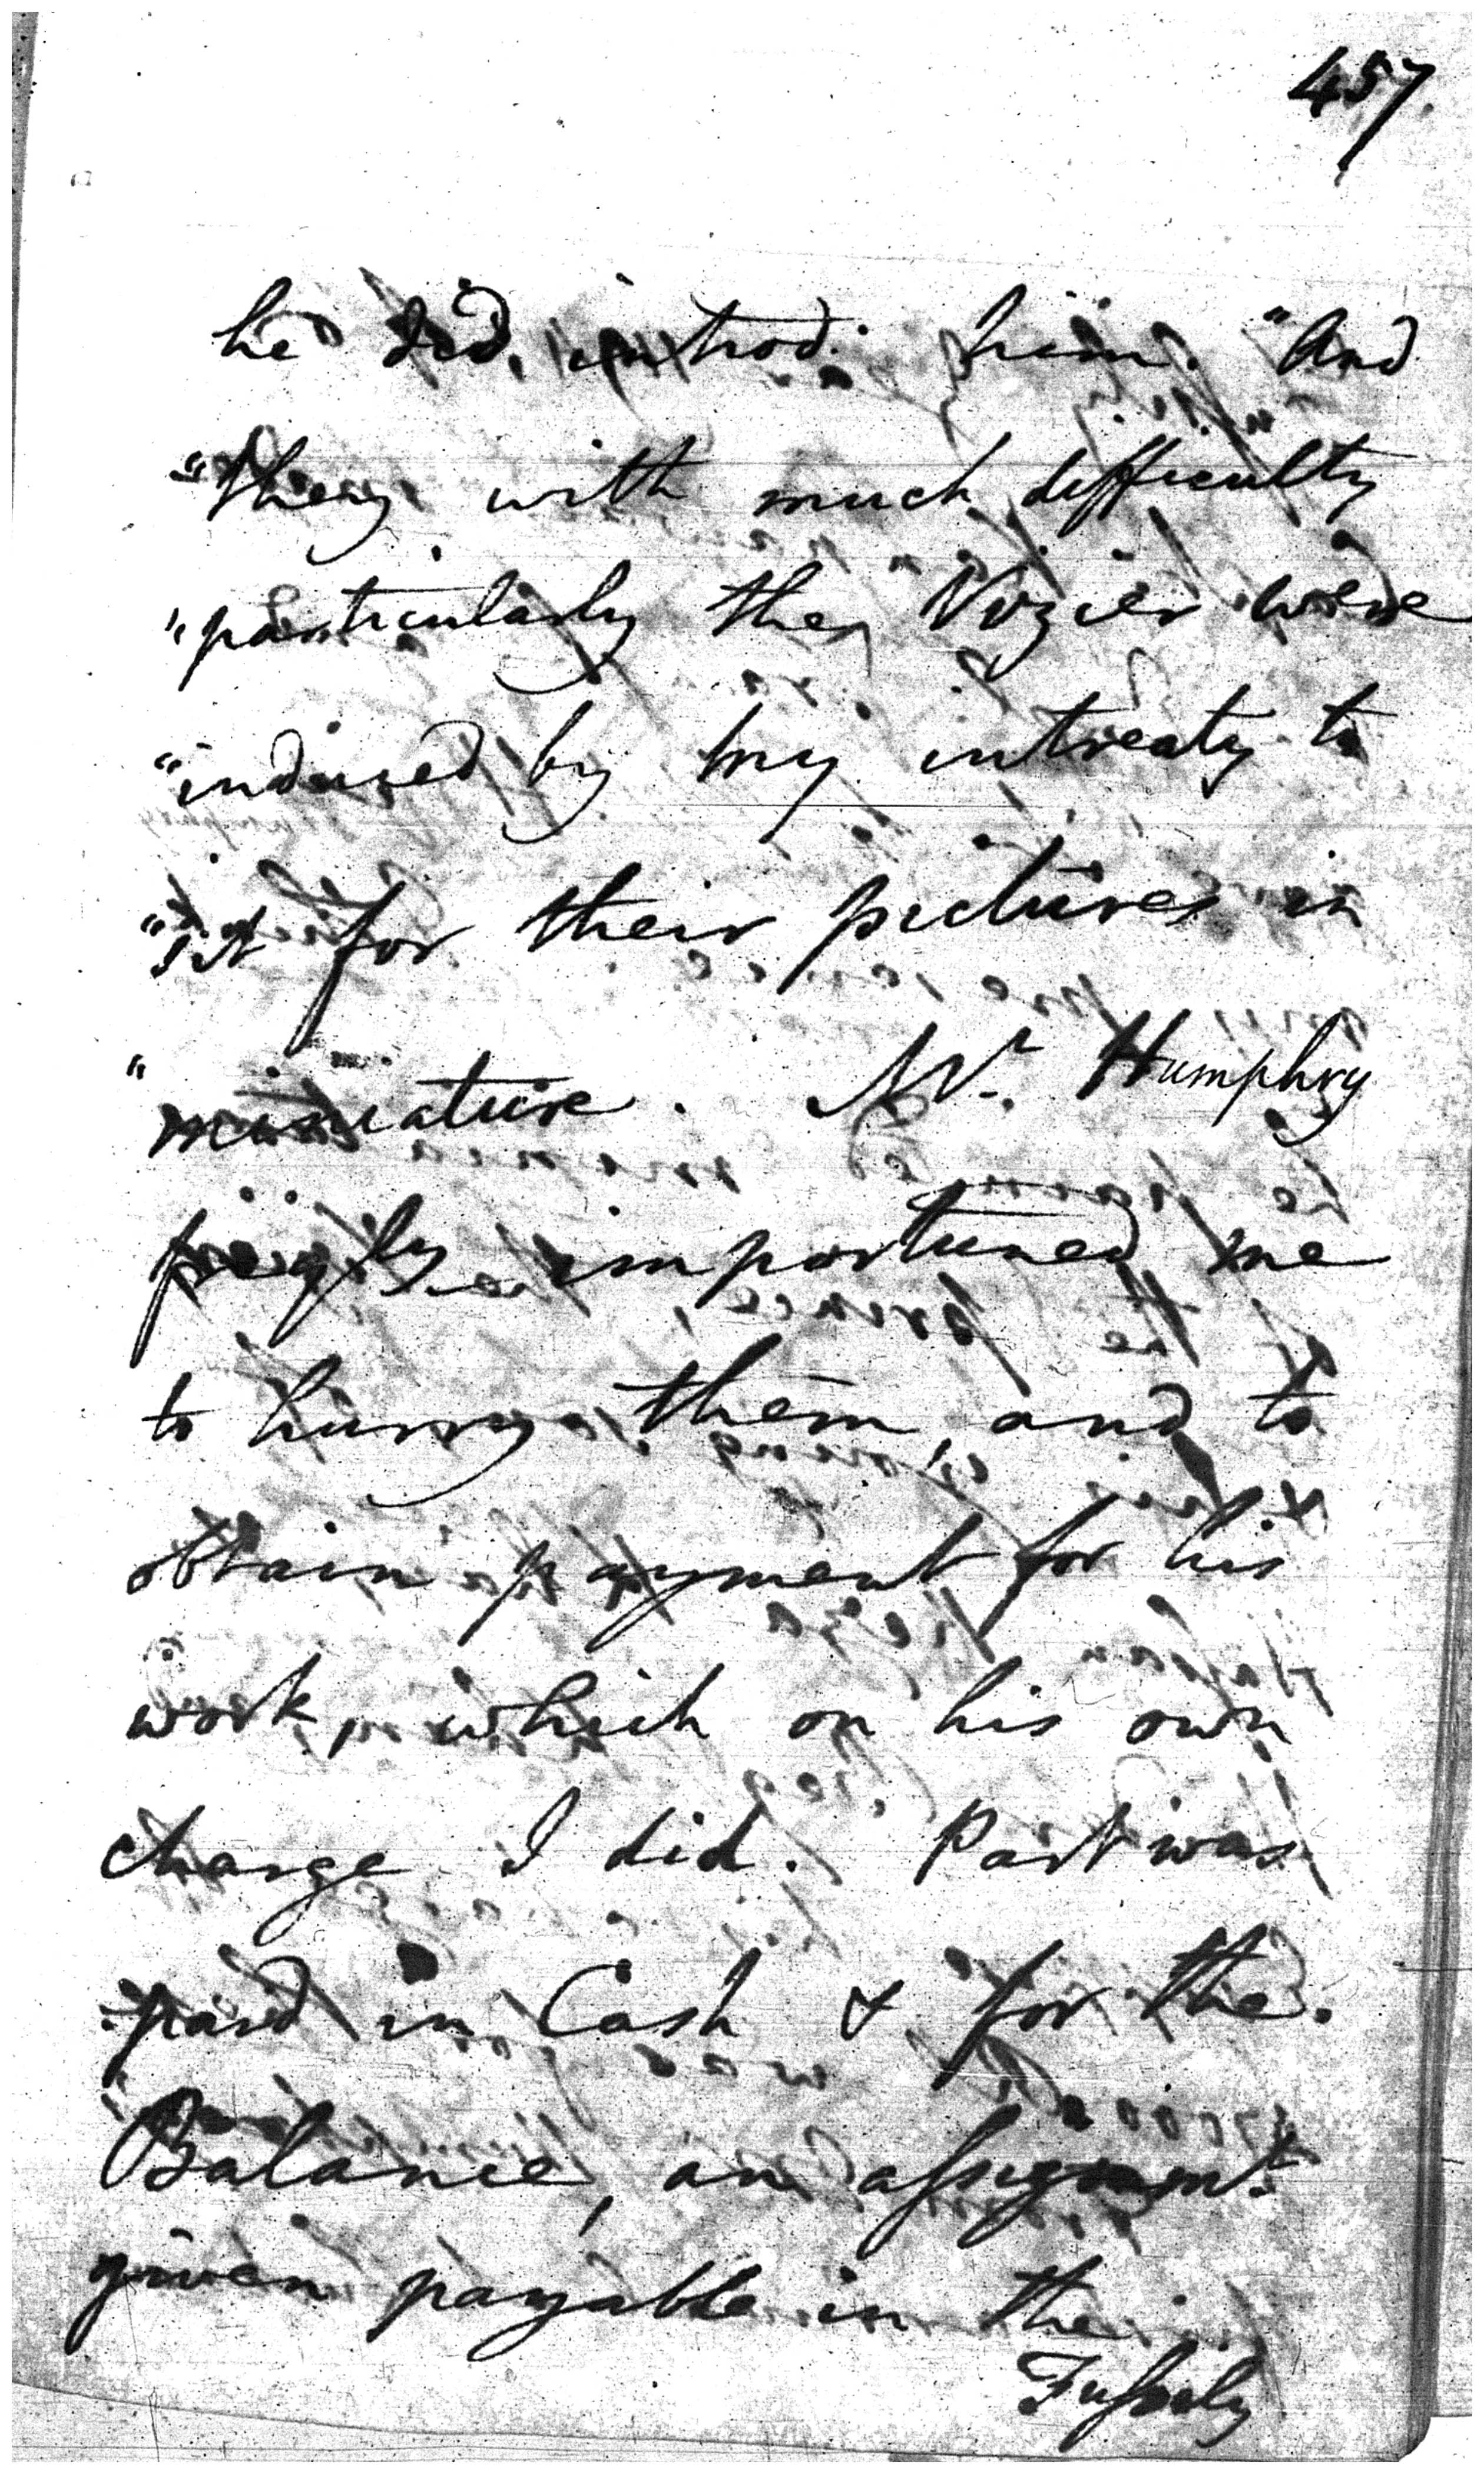 457.
he did, introd. him. "And
"they with much difficulty
"particularly the Vizier were
"induced by my intreaty to
"sit for their pictures in
"miniature. Mr. Humphry
freqly importuned me
to hurry them, and to
obtain payment for his
work, which on his own
charge I did. Part was
paid in Cash & for the
Balance, an assignmt.
given payable in the